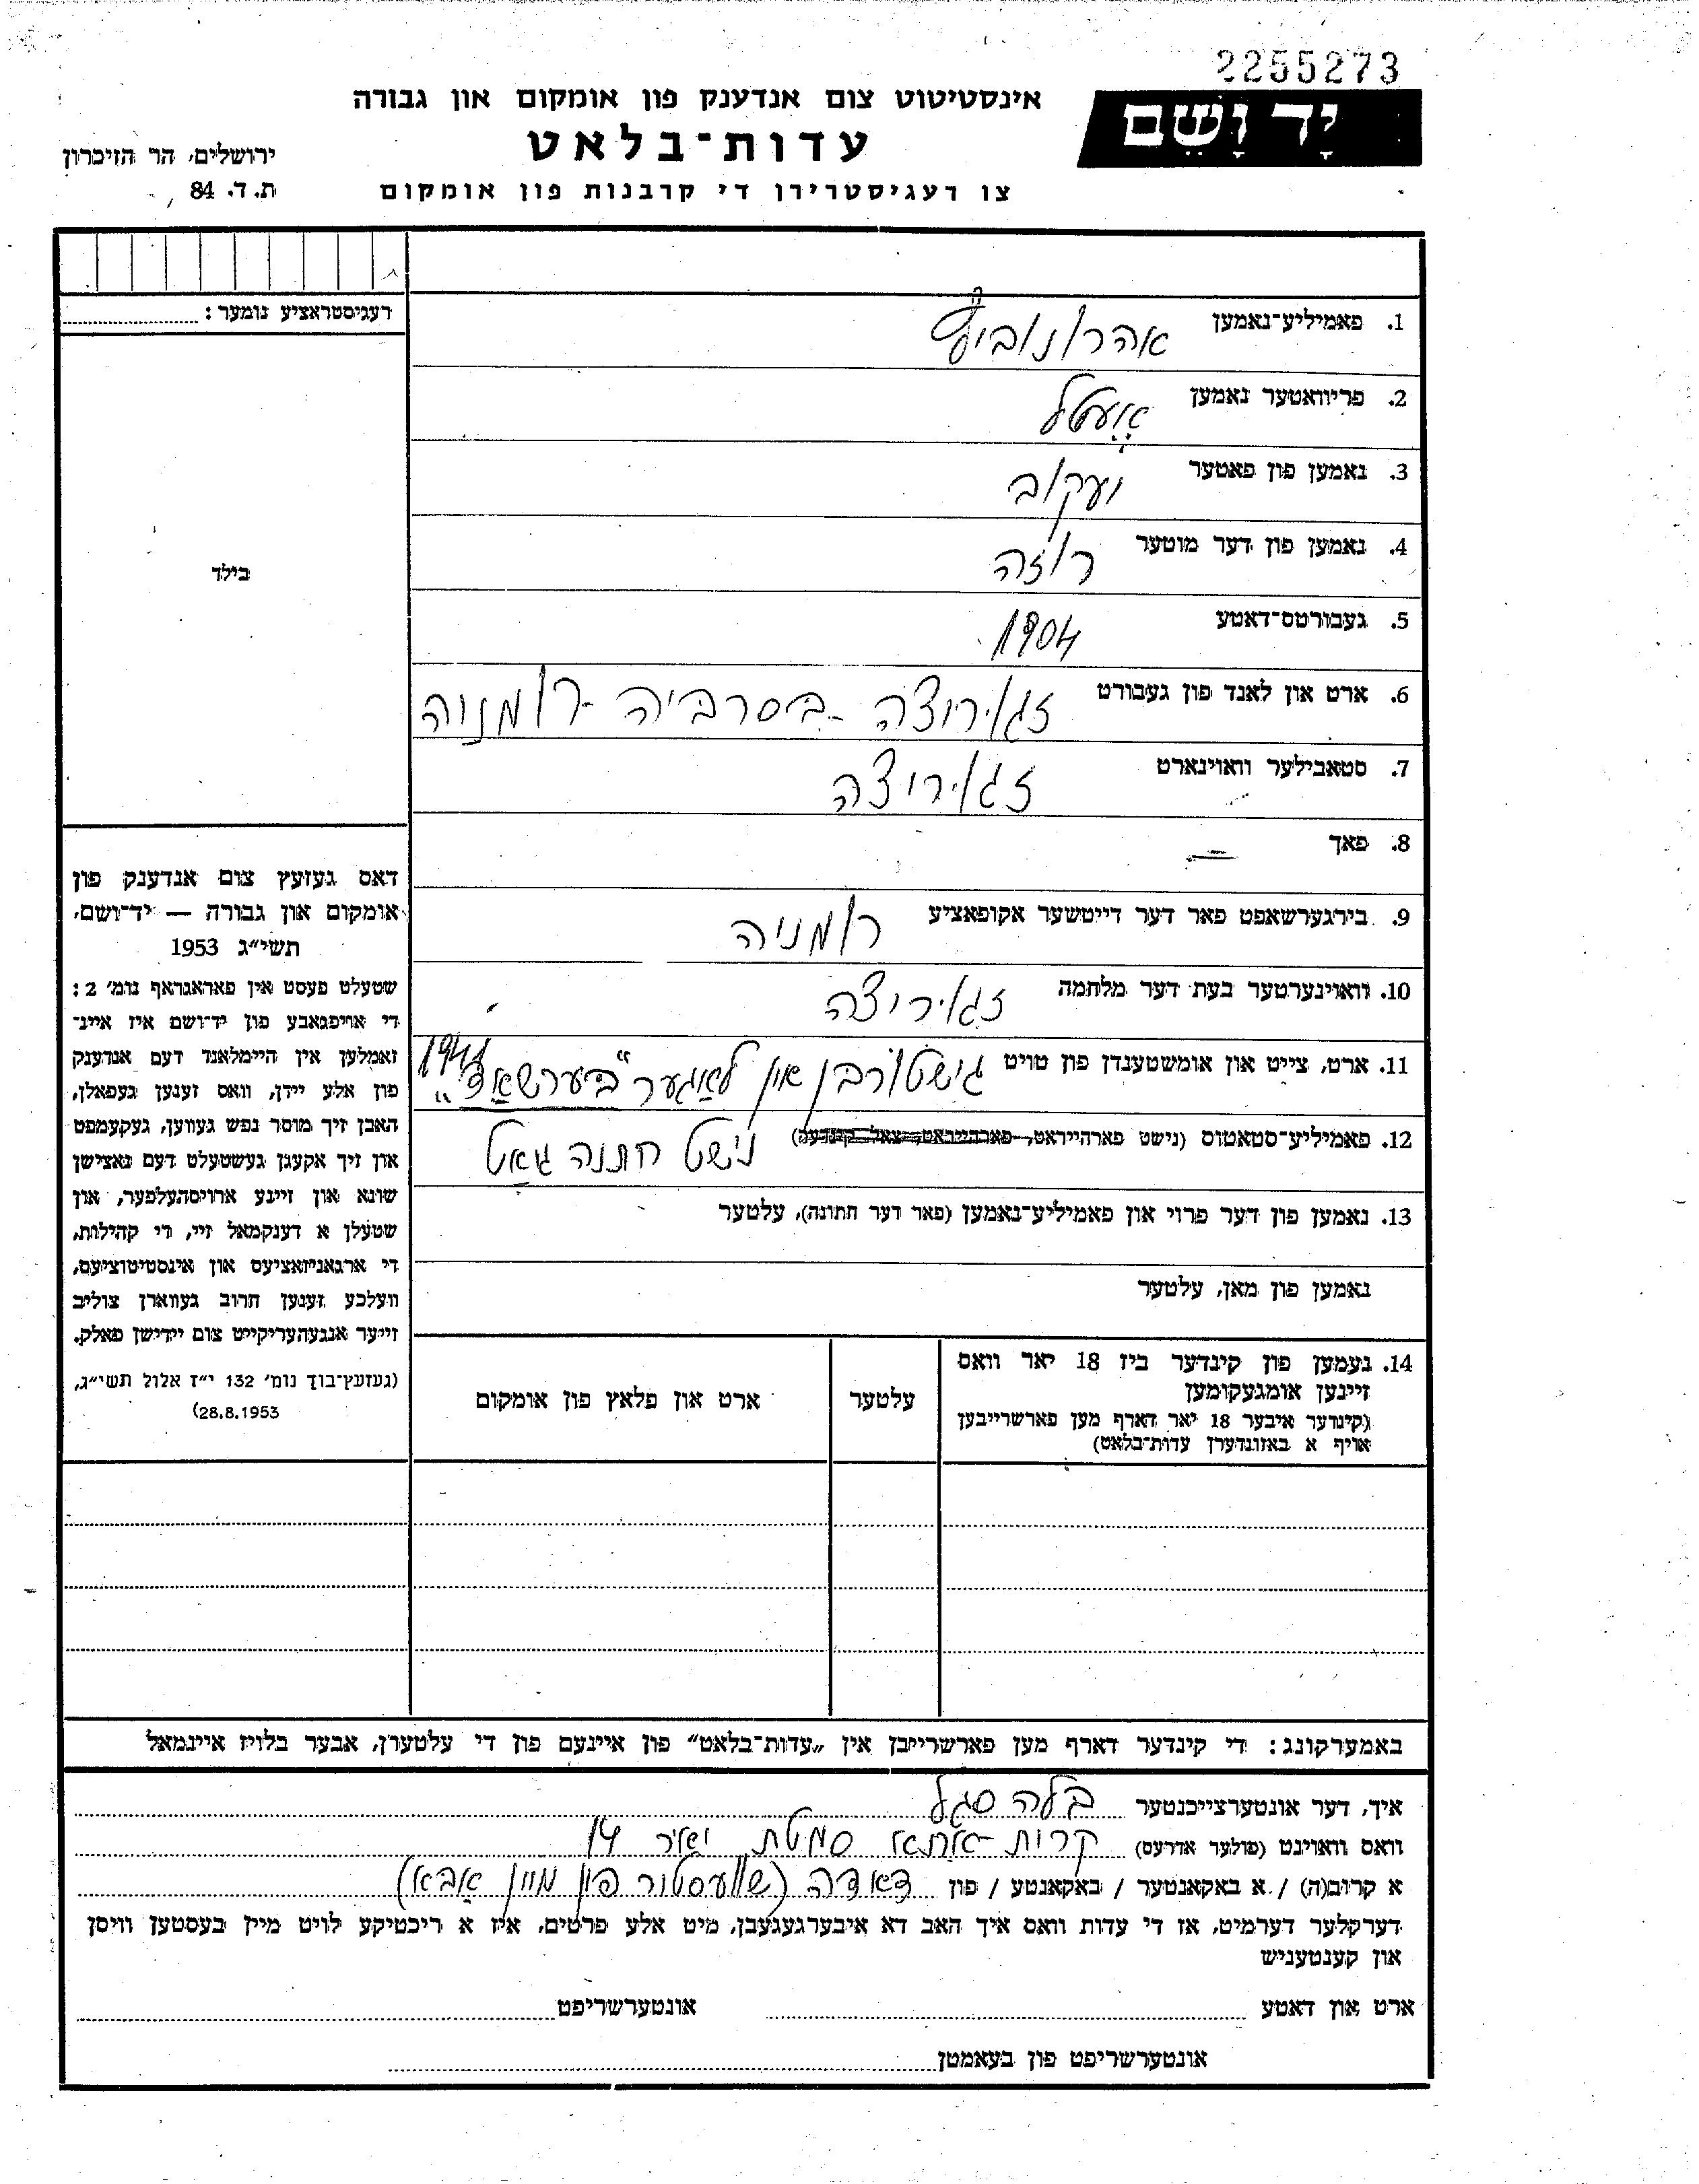 2255273
יָד וָשֵׁם
אינסטיטוט צום אנדענק פון אומקום און גבורה
עדות־בלאט
צו רעגיסטרירן די קרבנות פון אומקום
ירושלים, הר הזיכרון
ת. ד. 84
רעגיסטראציע נומער:
בילד
1. פאמיליע־נאמען אהרונוביץ
2. פריוואטער נאמען
3. נאמען פון פאטער יעקוב
4. נאמען פון דער מוטער רוזה
5. געבורטס־דאטע 1904
6. ארט און לאנד פון געבורט זגוריצה - בסרביה - רומניה
7. סטאבילער וואוינארט זגוריצה
8. פאך —
9. בירגערשאפט פאר דער דייטשער אקופאציע רומניה
10. וואוינערטער בעת דער מלחמה זגוריצה
11. ארט, צייט און אומשטענדן פון טויט גישטורבן אין לאַגער "בערשאַד" 1941
12. פאמיליע־סטאטוס (נישט פארהייראט, פארהייראט, צאל קינדער) נישט חתנה גאַט
13. נאמען פון דער פרוי און פאמיליע־נאמען (פאר דער חתונה), עלטער
נאמען פון מאן, עלטער
14. נעמען פון קינדער ביז 18 יאר וואס
זיינען אומגעקומען
(קינדער איבער 18 יאר דארף מען פארשרייבען
אויף א באזונדערן עדות־בלאט)
עלטער
ארט און פלאץ פון אומקום
דאס געזעץ צום אנדענק פון
אומקום און גבורה — יד־ושם,
תשי"ג 1953
שטעלט פעסט אין פאראגראף נומ' 2:
די אויפגאבע פון יד־ושם איז איינ־
זאמלען אין היימלאנד דעם אנדענק
פון אלע יידן, וואס זענען געפאלן,
האבן זיך מוסר נפש געווען, געקעמפט
און זיך אקעגן געשטעלט דעם נאצישן
שונא און זיינע ארויסהעלפער, און
שטעלן א דענקמאל זיי, די קהילות,
די ארגאניזאציעס און אינסטיטוציעס,
וועלכע זענען חרוב געווארן צוליב
זייער אנגעהעריקייט צום יידישן פאלק.
(געזעץ־בוך נומ' 132 י"ז אלול תשי"ג,
28.8.1953)
באמערקונג: די קינדער דארף מען פארשרייבן אין „עדות־בלאט" פון איינעם פון די עלטערן, אבער בלויז איינמאל
איך, דער אונטערצייכנטער בלה סגל
וואס וואוינט (פולער אדרעס) קרית-אתא סמטת יאיר 14
א קרוב(ה) / א באקאנטער / באקאנטע / פון דאדה (שוועסטור פון מיין אַבא)
דערקלער דערמיט, אז די עדות וואס איך האב דא איבערגעגעבן, מיט אלע פרטים, איז א ריכטיקע לויט מיין בעסטען וויסן
און קענטעניש
ארט און דאטע
אונטערשריפט
אונטערשריפט פון בעאמטן